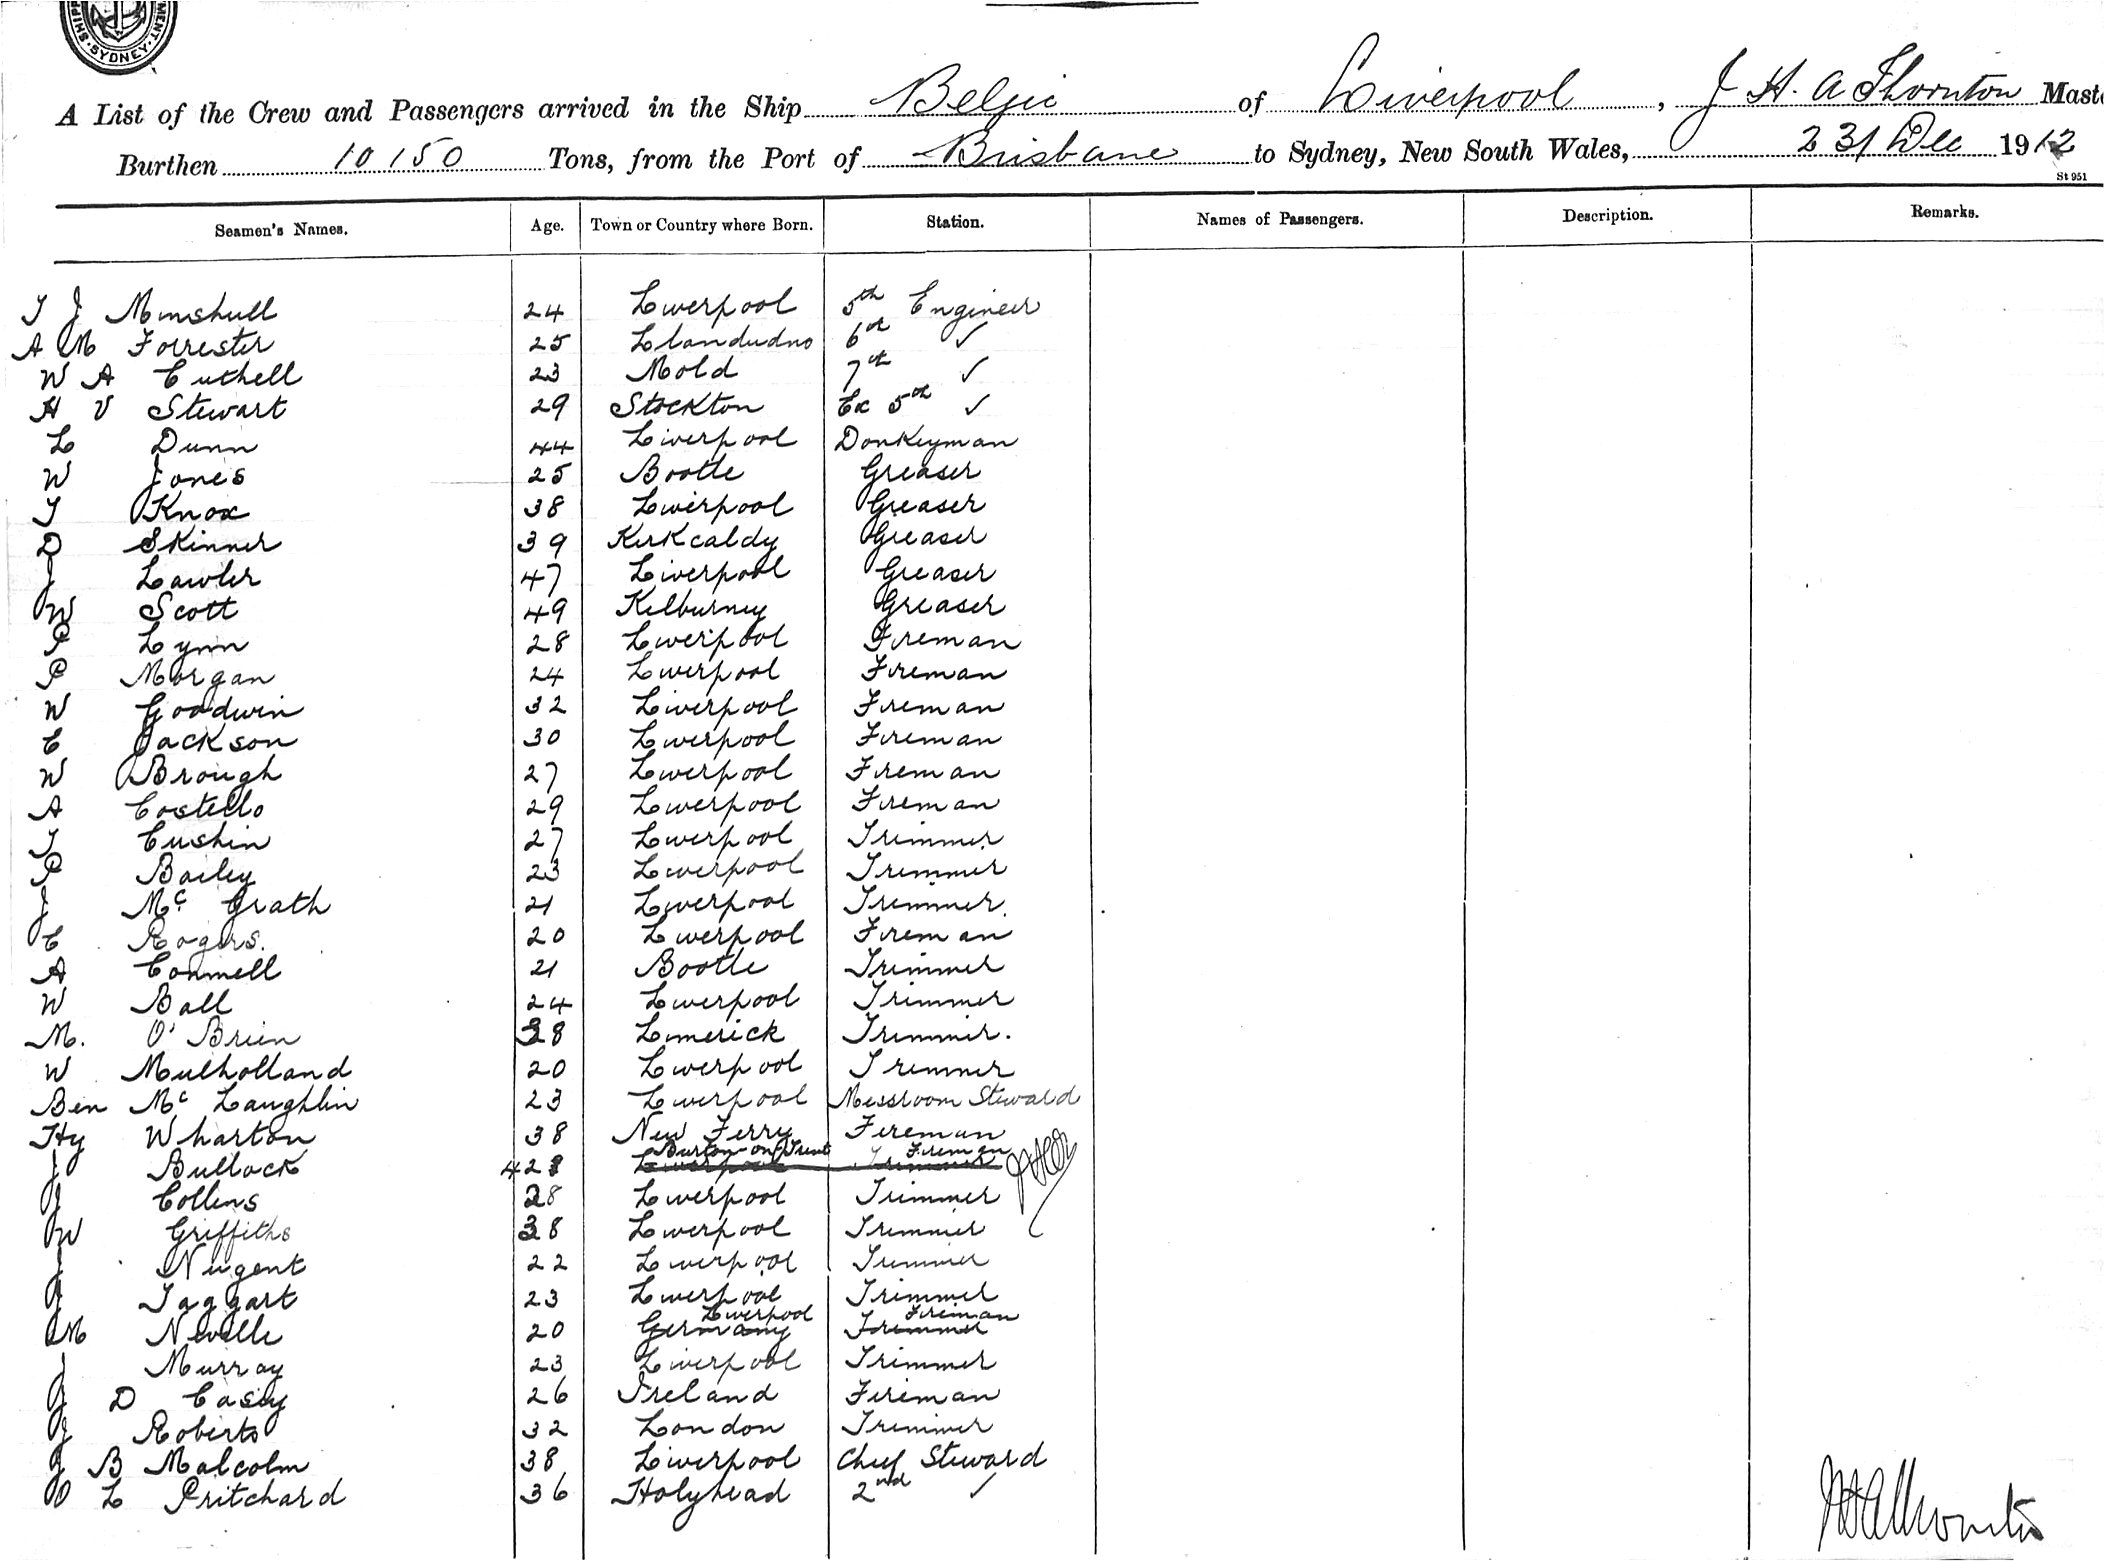 SHIPP MENT. SYDNEY.
A List of the Crew and Passengers arrived in the Ship Belgic of Liverpool, J H. A Thornton Maste
Burthen 10150 Tons, from the Port of Brisbane to Sydney, New South Wales, 23/ Dec 1912
St 951
Seamen's Names. Age. Town or Country where Born. Station. Names of Passengers. Description. Remarks.
T J Minshull 24 Liverpool 5th Engineer
A M Forrester 25 Llandudno 6th ✓
W A Cuthell 23 Mold 7th ✓
H V Stewart 29 Stockton Ex 5th ✓
L Dunn 44 Liverpool Donkeyman
W Jones 25 Bootle Greaser
T Knox 38 Liverpool Greaser
D Skinner 39 Kirkcaldy Greaser
J Lawler 47 Liverpool Greaser
W Scott 49 Kilburney Greaser
P Lynn 28 Liverpool Fireman
P Morgan 24 Liverpool Fireman
W Goodwin 32 Liverpool Fireman
C Jackson 30 Liverpool Fireman
W Brough 27 Liverpool Fireman
A Costello 29 Liverpool Fireman
T Cushin 27 Liverpool Trimmer
P Bailey 23 Liverpool Trimmer
J Mc Grath 21 Liverpool Trimmer
C Rogers. 20 Liverpool Fireman
A Conmell 21 Bootle Trimmer
W Ball 24 Liverpool Trimmer
M. O'Brien 38 Limerick Trimmer.
W Mulholland 20 Liverpool Trimmer
Ben Mc Laughlin 23 Liverpool Messroom Steward
Hy Wharton 38 New Ferry Fireman
J Bullock 42 Burton-on-Trent Fireman
J Collins 28 Liverpool Trimmer
W Griffiths 38 Liverpool Trimmer
J Nugent 22 Liverpool Trimmer
J Taggart 23 Liverpool Trimmer
Liverpool Fireman
M Neville 20 Germany Trimmer
J Murray 23 Liverpool Trimmer
J D Casey 26 Ireland Fireman
J Roberts 32 London Trimmer
J B Malcolm 38 Liverpool Chief Steward
O L Pritchard 36 Holyhead 2nd ✓
JHAThornton